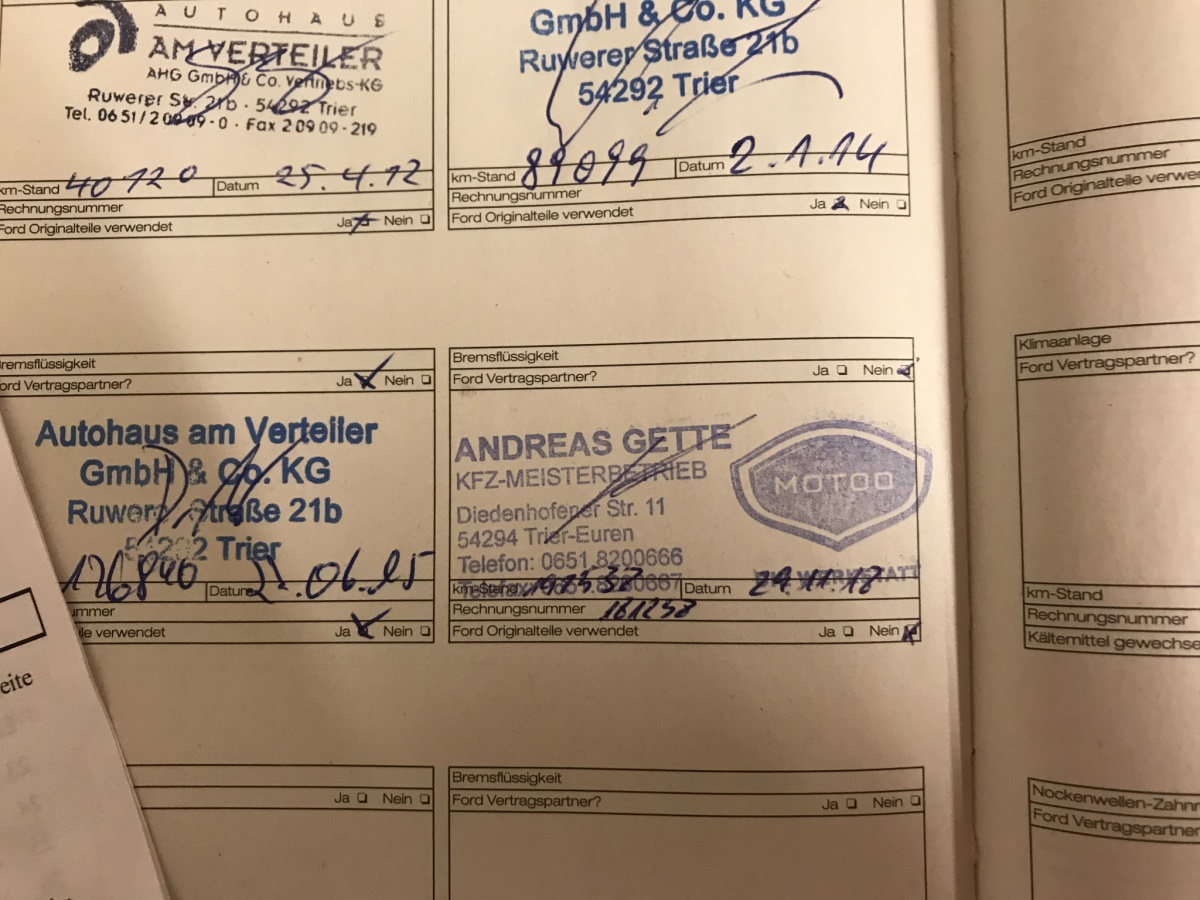 AUTOHAUS
AM VERTEILER
AHG GmbH & Co. Vertriebs-KG
Ruwerer Str. 21b · 54292 Trier
Tel. 06 51/2 09 09-0 · Fax 2 09 09-219
km-Stand 40120 Datum 25.4.12
Rechnungsnummer
Ford Originalteile verwendet Ja Nein
GmbH & Co. KG
Ruwerer Straße 21b
54292 Trier
km-Stand 89099 Datum 2.1.14
Rechnungsnummer
Ford Originalteile verwendet Ja Nein
km-Stand
Rechnungsnummer
Ford Originalteile verwe
Bremsflüssigkeit
ord Vertragspartner? Ja Nein
Autohaus am Verteiler
GmbH & Co. KG
Ruwerer Straße 21b
54292 Trier
126840 Datum .06.15
ummer
ile verwendet Ja Nein
Bremsflüssigkeit
Ford Vertragspartner? Ja Nein
ANDREAS GETTE
KFZ-MEISTERBETRIEB
MOTOO
Diedenhofener Str. 11
54294 Trier-Euren
Telefon: 0651 8200666
Telefax: 0651 8200667
km-Stand Datum 29.11.18
Rechnungsnummer 161258
Ford Originalteile verwendet Ja Nein
Klimaanlage
Ford Vertragspartner?
km-Stand
Rechnungsnummer
Kältemittel gewechse
eite
Ja Nein
Bremsflüssigkeit
Ford Vertragspartner? Ja Nein
Nockenwellen-Zahnr
Ford Vertragspartner